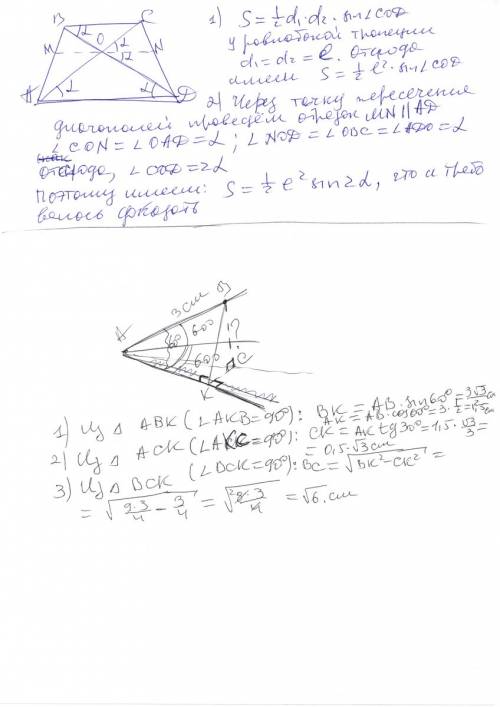 B C
O
M N
A D
α α
1) S = 1/2 d₁·d₂ · sin∠COD
У равнобокой трапеции
d₁ = d₂ = ℓ. Отсюда
имеем S = 1/2 ℓ² · sin∠COD
2) Через точку пересечения
диагоналей проведем отрезок MN ∥ AD
∠CON = ∠OAD = α; ∠NOD = ∠OBC = ∠ADO = α
Отсюда, ∠COD = 2α
Поэтому имеем: S = 1/2 ℓ² sin2α, что и требо
валось доказать
3 см B
A 60°
60° C
K
1) Из △ ABK (∠AKB = 90°): BK = AB · sin60° = 3√3/2 см
AK = AB · cos60° = 3 · 1/2 = 1,5 см
2) Из △ ACK (∠AKC = 90°): CK = AK tg30° = 1,5 · √3/3 =
= 0,5 · √3 см
3) Из △ BCK (∠BCK = 90°): BC = √(BK² − CK²) =
= √(9·3/4 − 3/4) = √(8·3/4) = √6 см